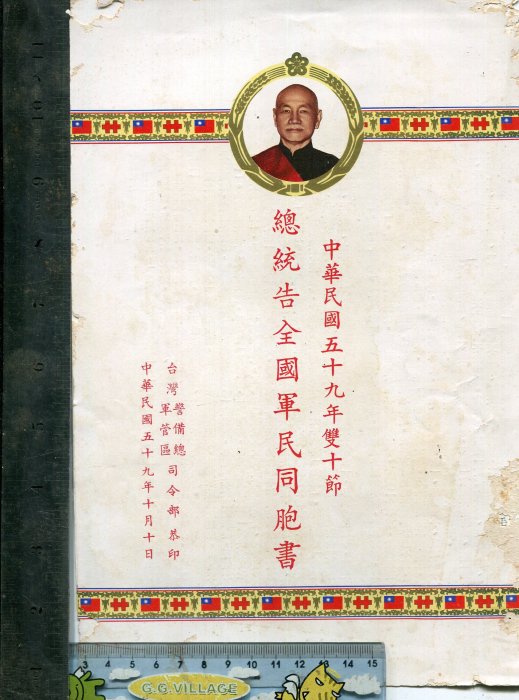 中華民國五十九年雙十節
總統告全國軍民同胞書
台灣警備總
軍管區
司令部恭印
中華民國五十九年十月十日
3 4 5 6 7 8 9 10 11 12 13 14 15
G.G.VILLAGE